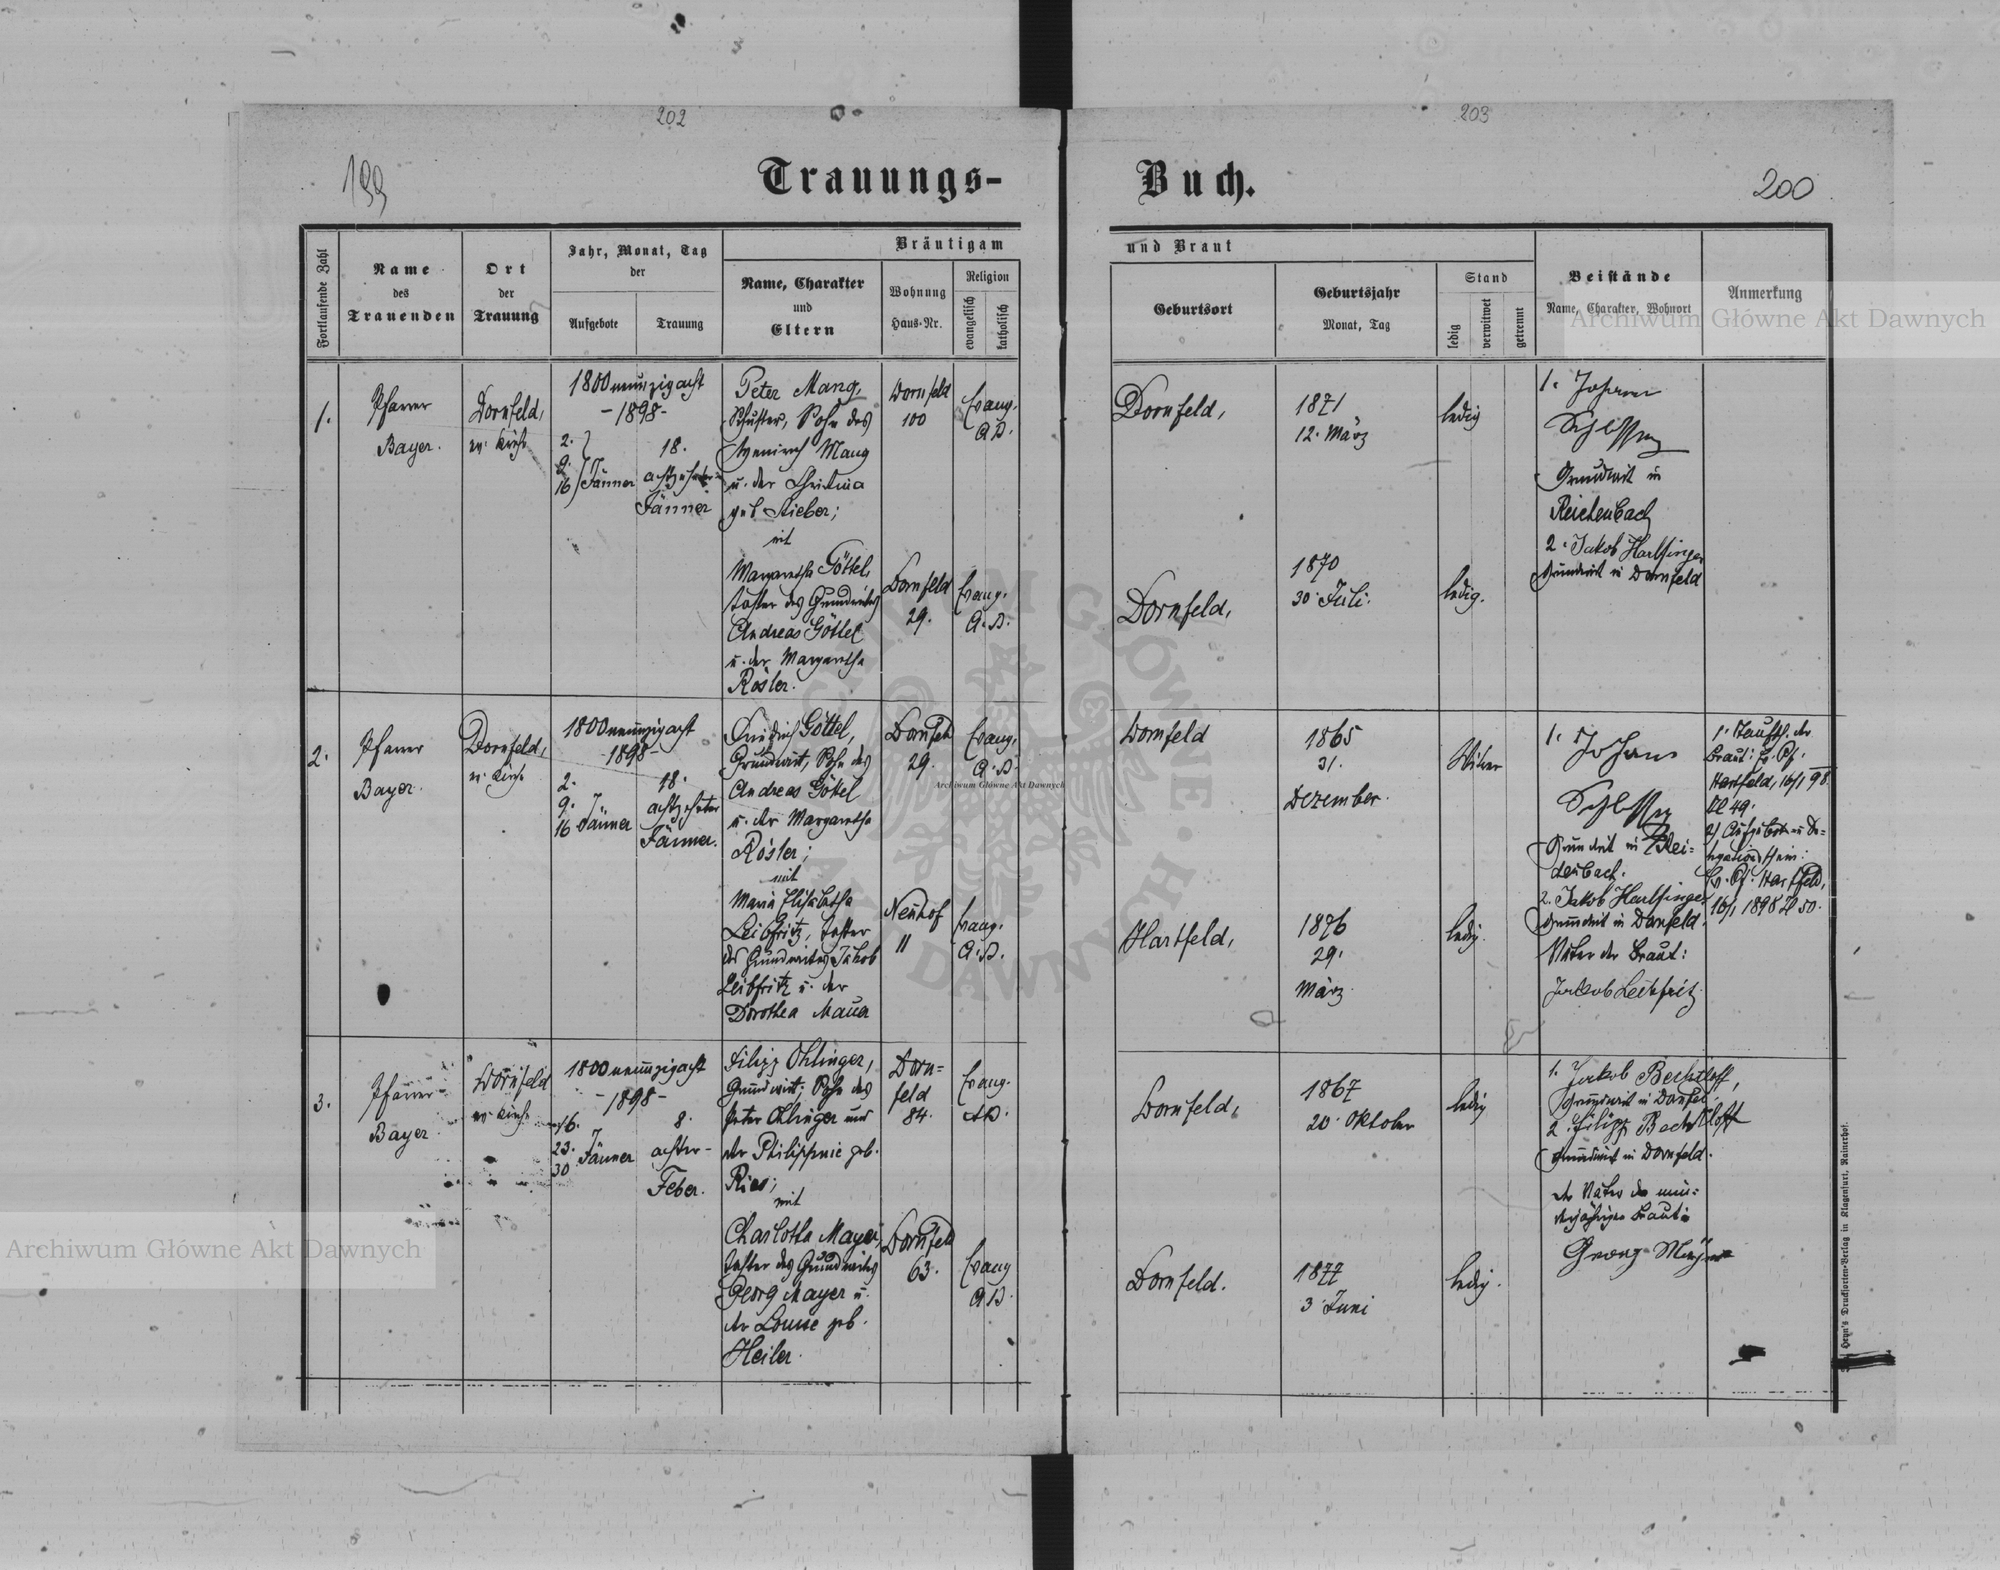 202
203
199
Trauungs-
Buch.
200
Fortlaufende Zahl
Name
des
Trauenden
Ort
der
Trauung
Jahr, Monat, Tag
der
Aufgebote
Trauung
Bräutigam
Name, Charakter
und
Eltern
Wohnung
Haus-Nr.
Religion
evangelisch
katholisch
und Braut
Geburtsort
Geburtsjahr
Monat, Tag
Stand
ledig
verwitwet
getrennt
Beistände
Name, Charakter, Wohnort
Anmerkung
Archiwum Główne Akt Dawnych
1.
Pfarrer
Bayer.
Dornfeld,
ev. Kirche
1800 neunzigacht
-1898-
2.
9.
16 Jänner
18.
achtzehnter
Jänner
Peter Mang,
Schuster, Sohn des
Heinrich Mang
u. der Christina
geb. Stieber;
mit
Margaretha Göttel,
Tochter des Grundwirtes
Andreas Göttel
u. der Margaretha
Rösler.
Dornfeld
100
Evang.
A.B.
Dornfeld
29.
Evang.
A.B.
Dornfeld,
1871
12. März
ledig
Dornfeld,
1870
30. Juli.
ledig.
1. Johann
Schlosser
Grundwirt in
Reichenbach
2. Jakob Harlfinger
Grundwirt in Dornfeld
2.
Pfarrer
Bayer.
Dornfeld,
ev. Kirche
1800 neunzigacht
-1898-
2.
9.
16 Jänner
18.
achtzehnter
Jänner.
Friedrich Göttel,
Grundwirt, Sohn des
Andreas Göttel
u. der Margaretha
Rösler;
mit
Maria Elisabetha
Leibfritz, Tochter
des Grundwirtes Jakob
Leibfritz u. der
Dorothea Mauer
Dornfeld
29.
Evang.
A.B.
Neuhof
11
Evang.
A.B.
Dornfeld
1865
31.
Dezember.
Witwer
Hartfeld,
1876
29.
März
ledig.
1. Johann
Schlosser
Grundwirt in Rei-
chenbach.
2. Jakob Harlfinger
Grundwirt in Dornfeld.
Vater der Braut:
Jakob Leibfritz
1. Taufsch. der
Braut: Ev. Pf.
Hartfeld, 16/1 98.
Zl 49.
Ev. Pf. Hartfeld,
16/1 1898 Zl 50.
Archiwum Główne Akt Dawnych
3.
Pfarrer
Bayer
Dornfeld
ev. Kirche
1800 neunzigacht
-1898-
16.
23.
30 Jänner
8.
achter
Feber.
Filipp Ohlinger,
Grundwirt, Sohn des
Peter Ohlinger und
der Philippine geb.
Ries;
mit
Charlotta Mayer,
Tochter des Grundwirtes
Georg Mayer u.
der Louise geb.
Heiler.
Dorn=
feld
84.
Evang.
A.B.
Dornfeld
63.
Evang
A.B.
Dornfeld,
1867
20. Oktober
ledig
Dornfeld.
1877
3 Juni
ledig.
1. Jakob Bechtloff,
Grundwirt in Dornfeld,
2. Filipp Bechtloff
Grundwirt in Dornfeld.
der Vater der min=
derjährigen Braut:
Georg Mayer
Heyn's Drucksorten-Verlag in Klagenfurt, Rainerhof.
Archiwum Główne Akt Dawnych
ARCHIWUM GŁÓWNE AKT DAWNYCH